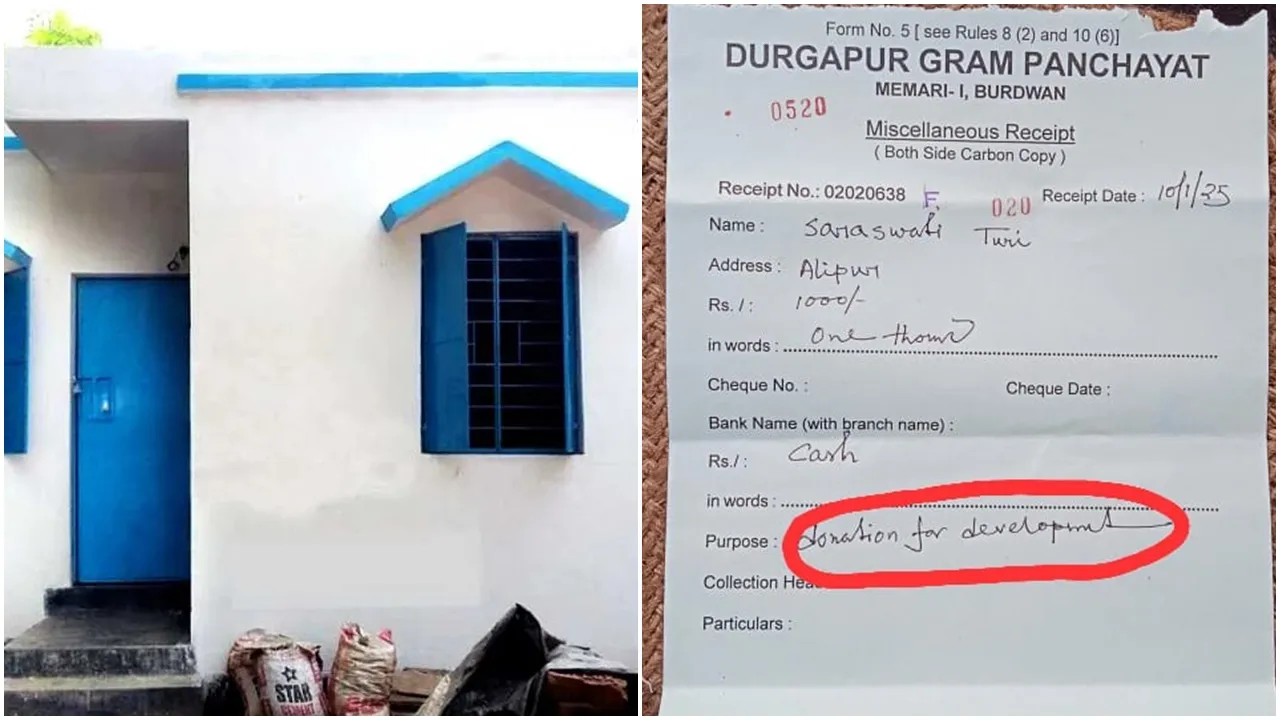 STAR
CEMENT
Form No. 5 [ see Rules 8 (2) and 10 (6)]
DURGAPUR GRAM PANCHAYAT
MEMARI- I, BURDWAN
0520
Miscellaneous Receipt
( Both Side Carbon Copy )
Receipt No.: 02020638 F. 020 Receipt Date : 10/1/25
Name : Saraswati Turi
Address : Alipur
Rs. / : 1000/-
in words : One thous
Cheque No. : Cheque Date :
Bank Name (with branch name) :
Rs./ : Cash
in words :
Purpose : donation for developmt
Collection Hea
Particulars :